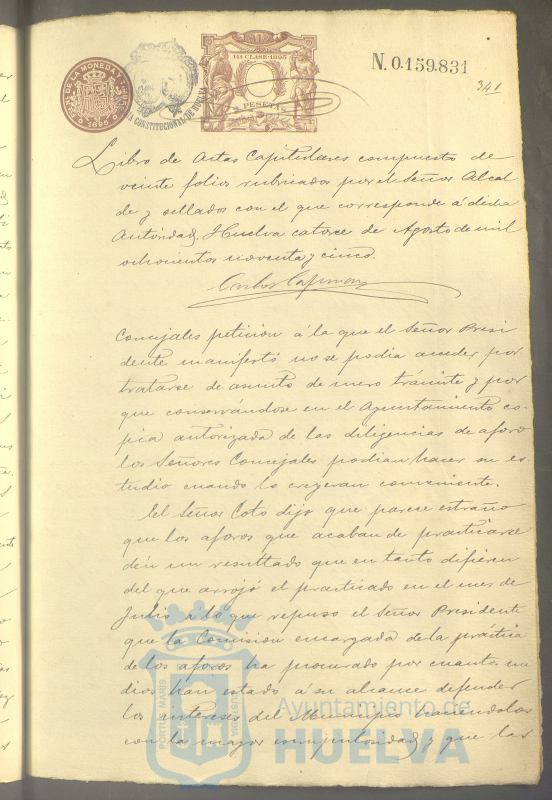 N. 0.159.831
341
11ª CLASE-1895
2 PESETAS
1895
Libro de Actas Capitulares compuesto de
veinte folios rubricados por el Señor Alcal
de y sellados con el que corresponde á dicha
Autoridad, Huelva catorce de Agosto de mil
ochocientos noventa y cinco.
Concejales petición á la que el Señor Presi
dente manifestó no se podia acceder por
tratarse de asunto de mero trámite y por
que conservándose en el Ayuntamiento co-
pia autorizada de las diligencias de aforo
los Señores Concejales podian hacer su es-
tudio cuando lo creyeran conveniente.
El Señor Coto dijo que parece estraño
que los aforos que acaban de practicarse
den un resultado que en tanto difieren
del que arrojó el practicado en el mes de
Julio á lo que repuso el Señor Presidente
que la Comision encargada de la práctica
de los aforos ha procurado por cuantos me
dios han estado á su alcance defender
los intereses del Municipio haciendolos
con la mayor escrupulosidad y que las
PORTUS MARIS
Ayuntamiento de
HUELVA